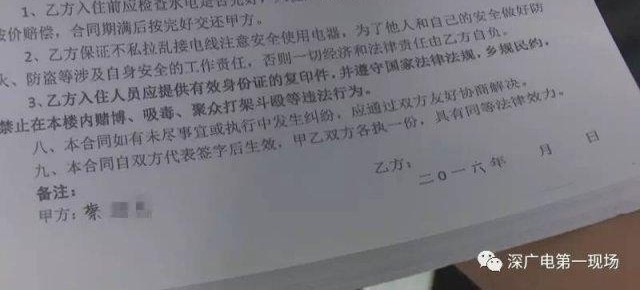 1、乙方入住前应检查水电是否完好,
按价赔偿，合同期满后按完好交还甲方。
2、乙方保证不私拉乱接电线注意安全使用电器，为了他人和自己的安全做好防
火、防盗等涉及自身安全的工作责任，否则一切经济和法律责任由乙方自负。
3、乙方入住人员应提供有效身份证的复印件，并遵守国家法律法规，乡规民约，
禁止在本楼内赌博、吸毒、聚众打架斗殴等违法行为。
八、本合同如有未尽事宜或执行中发生纠纷，应通过双方友好协商解决。
九、本合同自双方代表签字后生效，甲乙双方各执一份，具有同等法律效力。
备注：
甲方： 乙方：
二〇一六年 月 日
深广电第一现场